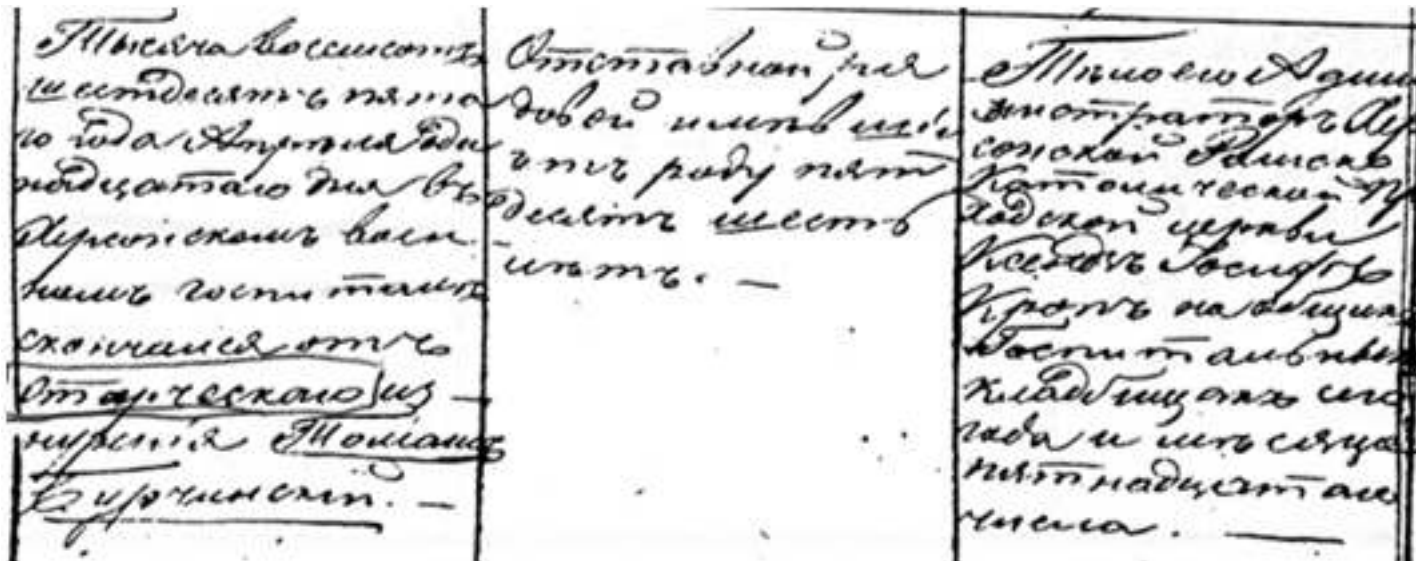 Тысяча восемьсотъ
шестдесятъ пята
го года Апрѣля Оди
надцатаго дня въ
Херсонскомъ воен
номъ госпиталѣ
скончался отъ
старческаго из
нуренія Томашъ
Бурчинскій. —
Отставной ря
довой имѣвшій
отъ роду пят
десятъ шесть
лѣтъ. —
Тѣло его Адми
нистраторъ Хер
сонской Римско
Католической При
ходской церкви
Ксендзъ Іосифъ
на общихъ
Госпитальныхъ
кладбищахъ сего
года и мѣсяца
пятнадцатаго
числа. —